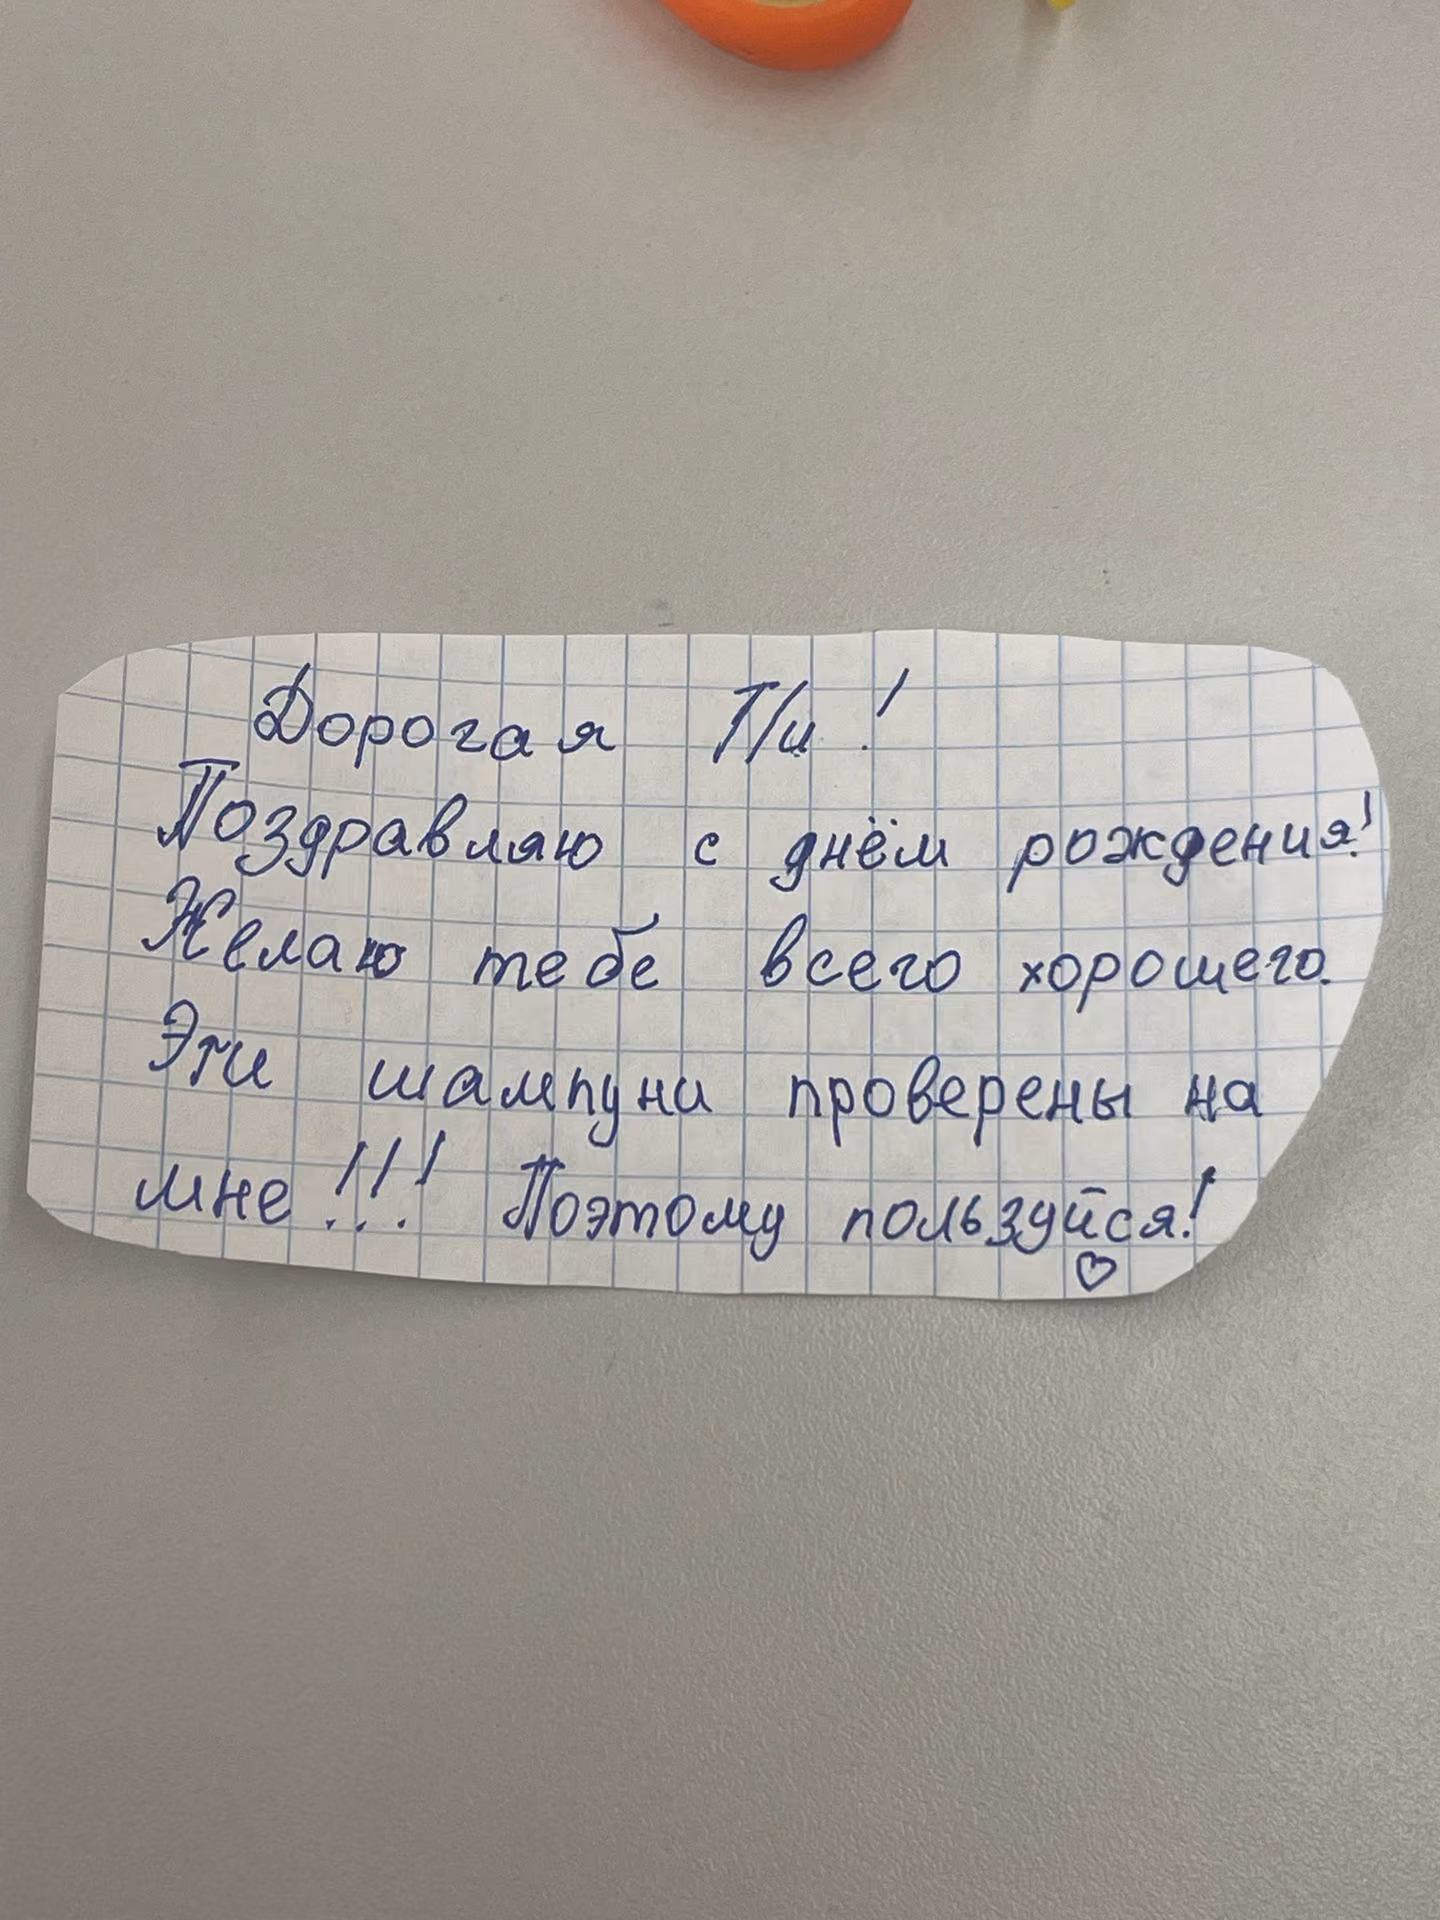 Дорогая Пи!
Поздравляю с днём рождения!
Желаю тебе всего хорошего.
Эти шампуни проверены на
мне!!! Поэтому пользуйся!
♡